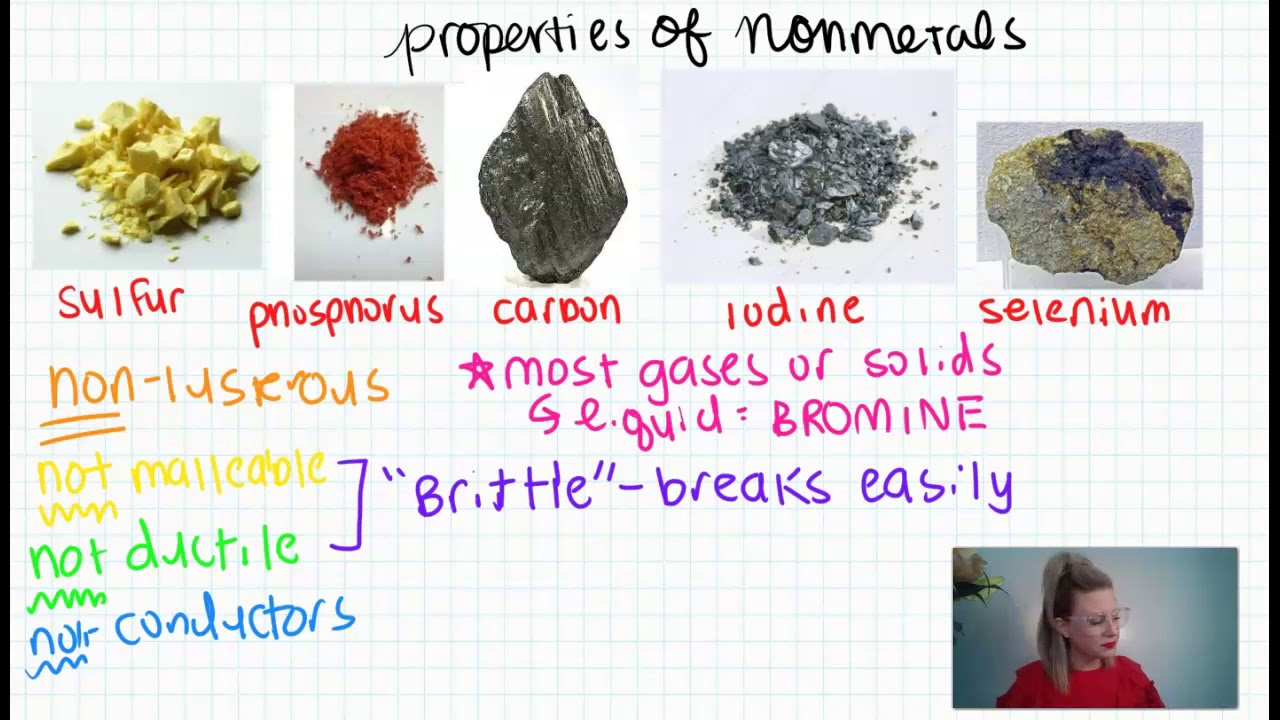 properties of nonmetals
sulfur
phosphorus
carbon
Iodine
selenium
non-lusterous
not malleable
not ductile
not conductors
*most gases or solids
↳ e.quid = BROMINE
] "Brittle" - breaks easily